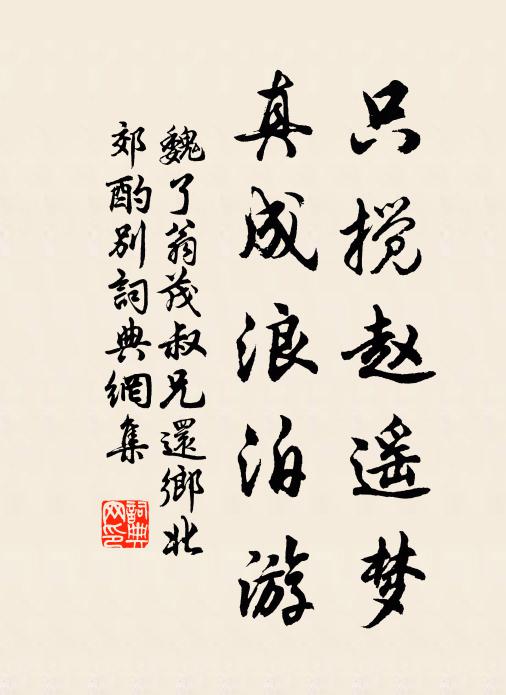 只搅赵遥梦
真成浪泊游
魏了翁茂叔兄還鄉北
郊酌别詞典網集
詞典网印